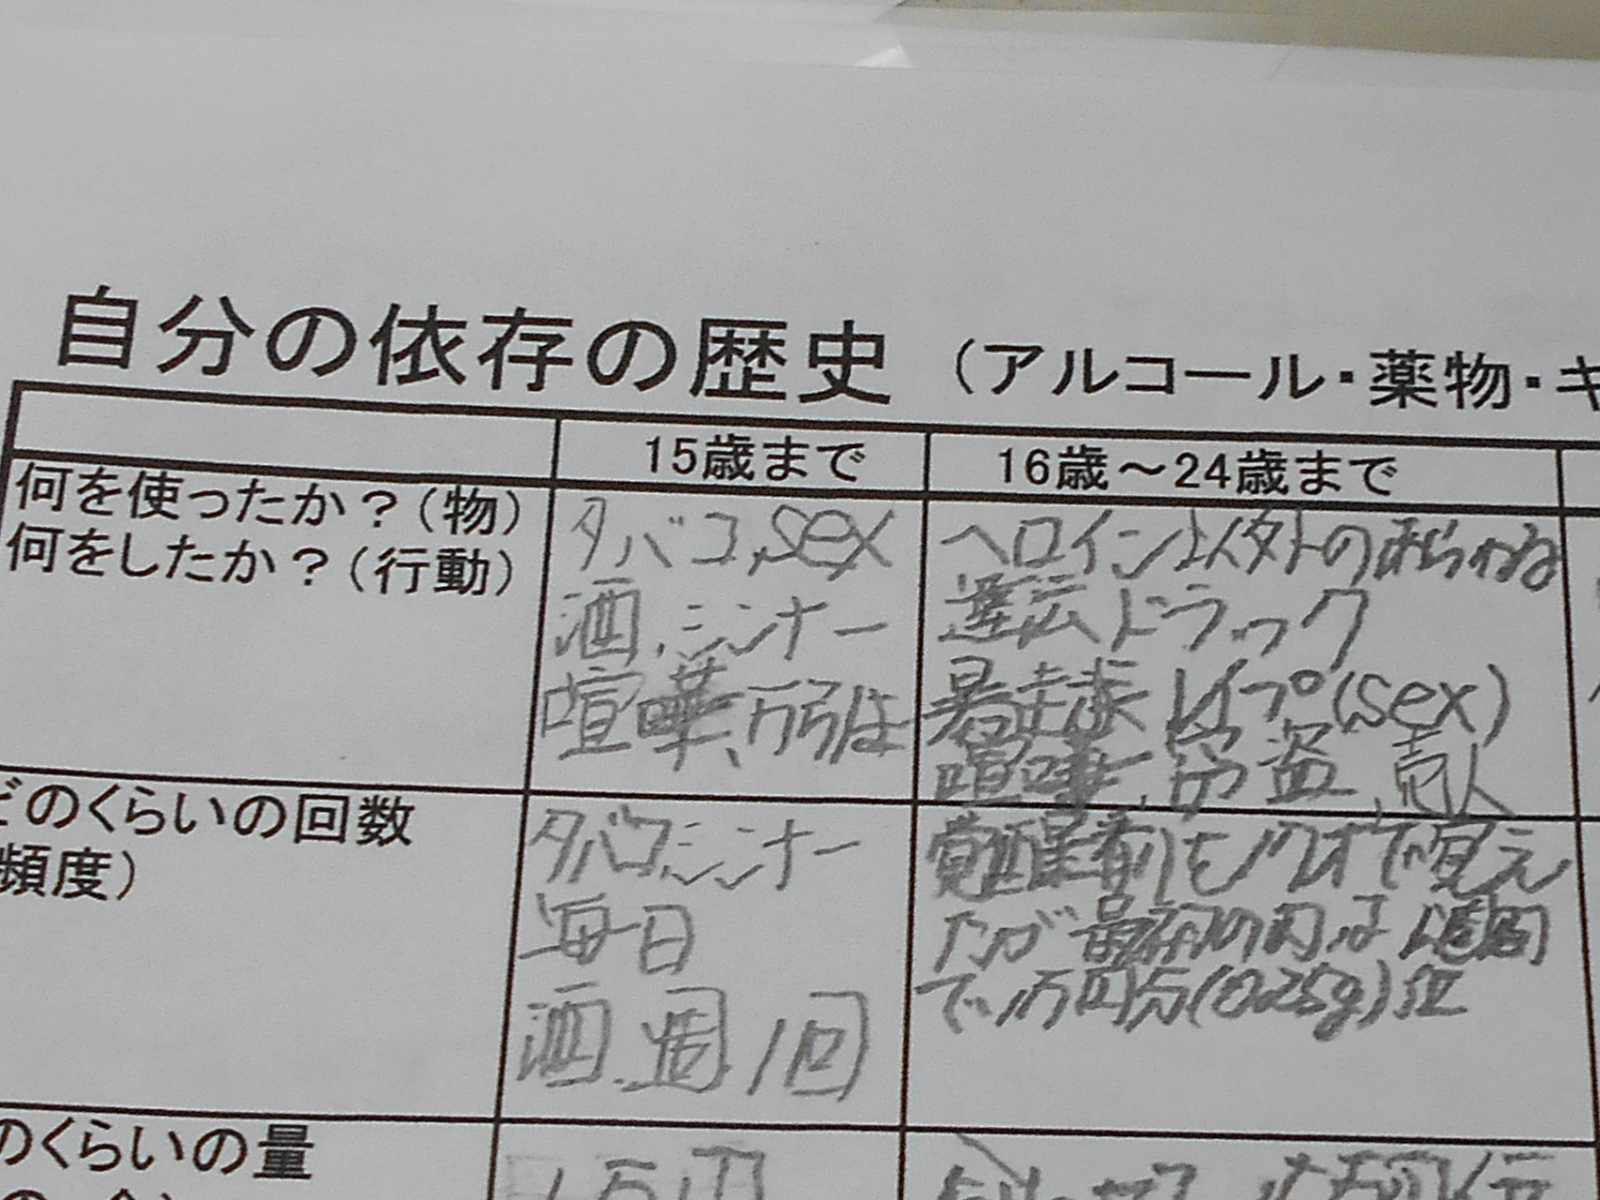 自分の依存の歴史 (アルコール・薬物・キ
15歳まで
16歳～24歳まで
何を使ったか？(物)
何をしたか？(行動)
タバコ、sex
酒、シンナー
喧嘩、万引は
ヘロイン以外のあらゆる
違法ドラッグ
暴走族 レイプ(sex)
喧嘩、窃盗、売人
どのくらいの回数
頻度)
タバコ、シンナー
毎日
酒、週1回
覚醒剤を
で覚え
たが最初の内は1週間
で1万円分(0.25g)位
のくらいの量